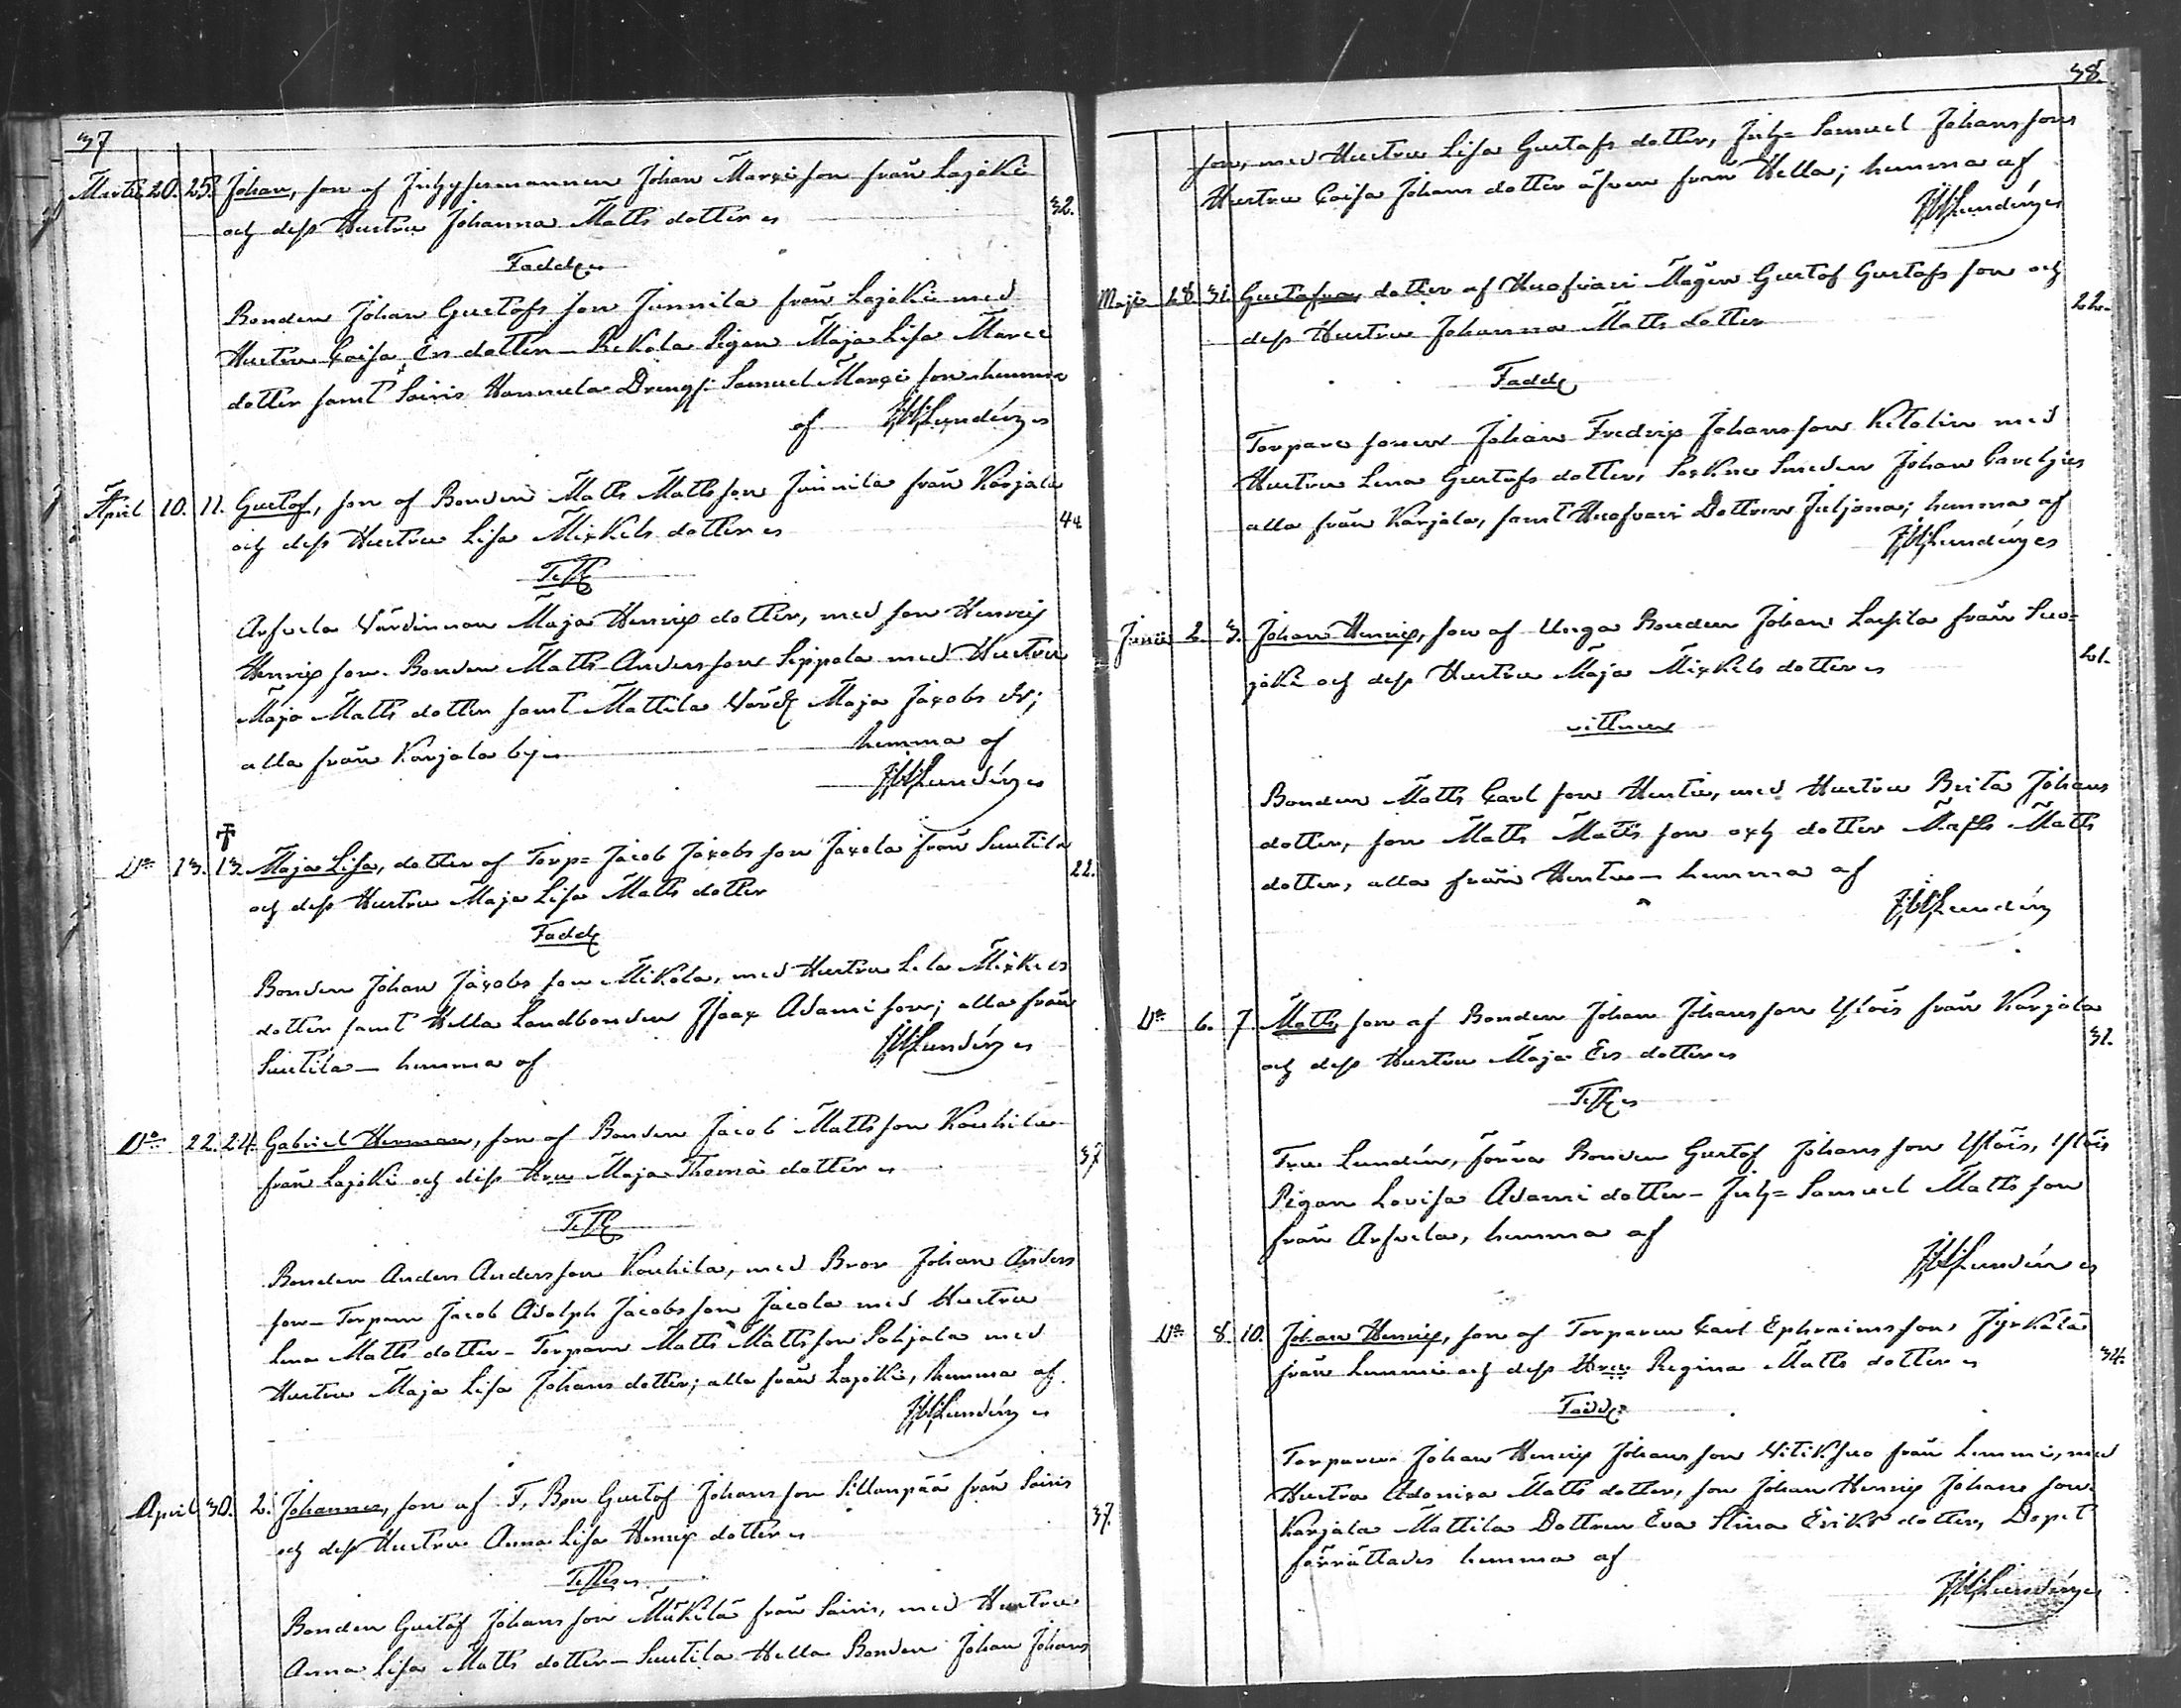 37
Martii 20. 25. Johan, son af Inhysesmannen Johan Marci son från Lajoki
och dess Hustru Johanna Matts dotter 32.
Fadd
Bonden Johan Gustafs son Junnila från Lajoki med
Hustru Caisa Ers dotter – Rekola Pigan Maja Lisa Marci
dotter samt Soinis Hannula Dreng Samuel Marci son hemma
af JWLundén
April 10. 11. Gustof, son af Bonden Matts Matts son Junnila från Karjala
och dess Hustru Lisa Mickels dotter 44
Test
Arfvela Värdinnan Maja Henrics dotter, med son Henric
Henrics son. Bonden Matts Anders son Seppala med Hustru
Maja Matts dotter samt Mattila Värd Maja Jacobs dr;
alla från Karjala by hemma af
JWLundén
Do 13. 13. Maja Lisa, dotter af Torp= Jacob Jacobs son Jacola från Suutila
och dess Hustru Maja Lisa Matts dotter 22.
Fadd
Bonden Johan Jacobs son Mikola, med Hustru Lela Mickels
dotter samt Hella Landbonden Isaac Adami son; alla från
Suutila – hemma af JWLundén
Do 22. 24. Gabriel Herman, son af Bonden Jacob Matts son Kouhila
från Lajoki och dess Hru Maja Thomæ dotter 37
Test
Bonden Anders Anders son Kouhila, med Bror Johan Anders
son – Torparn Jacob Adolph Jacobs son Jacola med Hustru
Lena Matts dotter – Torparn Matts Matts son Pohjala med
Hustru Maja Lisa Johans dotter; alla från Lajoki, hemma af
JWLundén
April 30. 2. Johannes, son af F. Bon Gustof Johans son Sillanpää från Soinis
och dess Hustru Anna Lisa Henrics dotter 37.
Testes
Bonden Gustof Johans son Mäkilä från Soinis, med Hustru
Anna Lisa Matts dotter – Suutila Hella Bonden Johan Johans
38.
son, med Hustru Lisa Gustafs dotter, Inh= Samuel Johans sons
Hustru Caisa Johans dotter äfven från Hella; hemma af
JWLundén
Maji 28. 31. Gustafva, dotter af Huofvari Mågen Gustof Gustafs son och
dess Hustru Johanna Matts dotter 22.
Fadd
Torpare sonen Johan Fredric Johans son Ketolin med
Hustru Lena Gustafs dotter, Sockne Smeden Johan
alla från Karjala, samt Huofvari Dottren Juljana; hemma af
JWLundén
Junii 2. 3. Johan Henric, son af Unga Bonden Johan Lassila från Suo=
joki och dess Hustru Maja Mickels dotter 21.
vittnen
Bonden Matts Carl son Huntu, med Hustru Brita Johans
dotter, son Matts Matts son och dotter Matts
dotter, alla från Huntu – hemma af
JWLundén
Do 6. 7 Matts, son af Bonden Johan Johans son Ylöis från Karjala
och dess Hustru Maja Ers dotter 31.
Test
Fru Lundén, förra Bonden Gustof Johans son Ylöis, Ylöis
Pigan Lovisa Adami dotter – Inh= Samuel Matts son
från Arfvela, hemma af
JWLundén
Do 8. 10. Johan Henric, son af Torparen Carl Ephraims son Jyrkälä
från Lemmi och dess Hru Regina Matts dotter 34.
Fadd
Torparen Johan Henric Johans son Vitiksuo från Lemmi, med
Hustru Adonica Matts dotter, son Johan Henric Johans son
Karjala Mattila Dottren Eva Stina Eriks dotter, Dopet
förrättades hemma af
JWLundén